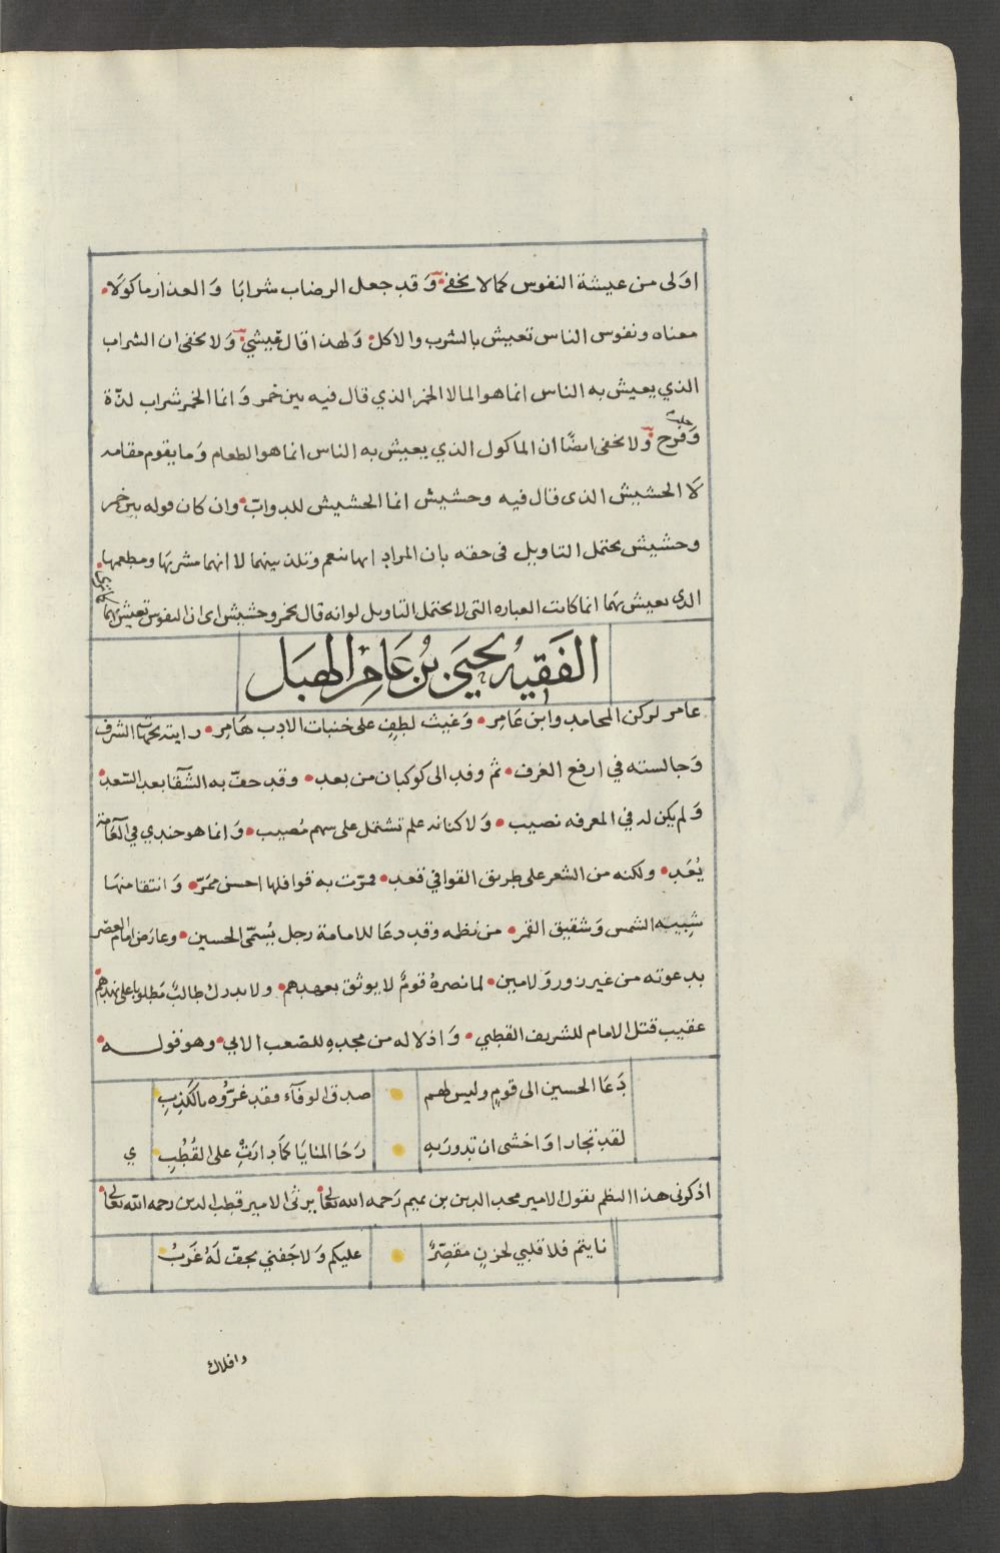 اوَلى من عيشة النفوس كما لا يخفى وَقد جعل الرضاب شرابًا وَالعذار ماكولًا
معناه ونفوس الناس تعيش بالشرب والاكل وَلهذا قال عيشي وَلا يخفى ان الشراب
الذي يعيش به الناس انما هو الما لا الخمر الذي قال فيه بين خمر وَانما الخمر شراب لذّة
وَفرح وَلا يخفى ايضًا ان الماكول الذي يعيش به الناس انما هو الطعام وَما يقوم مقامه
لَا الحشيش الذى قال فيه وحشيش انما الحشيش للدوابّ وان كان قوله بين خمر
وحشيش يحتمل التاويل فى حقه بان المراد انها تنعم وتلذ بينهما لا انهما مشربها ومطعمها
الذى تعيش بهَما انما كانت العباره التى لا يحتمل التاويل لو انه قال بخمر وحشيش اى ان النفوس تعيش بهما كما ترى
الفَقيه يحيَى بْن عَامِر الهبَل
عامر لركن المحامد وابن عَامِر وَغيث لطيف على جنبات الادب هَامِر رايته بحمات الشرف
وَجالسته في ارفع الغرف ثم وفد الى كوكبان من بعد وقد حفّ به الشقا بعد السّعد
وَلم يكن له في المعرفه نصيب وَلا كنانه علم تشتمل على سهم مُصيب وَانما هو جندي في العَامة
يُعَد ولكنه من الشعر على طريق القوافي قعد فمرّت به قوافلها احسن ممَرّ وَانتقا منهَا
شبيه الشمس وَشقيق القمر من نظمه وقد دعَا للامامة رجل يُسمّى الحسين وعارض امام العصر
بدعوته من غير زور وَلا مين لما نصرهُ قومٌ لا يوثق بعهدهم ولا يدرك طالبٌ مَطلوبا على يدهم
عقيب قتل الامام للشريف القطبي وَاذلاله من مجدهِ للصّعب الابي وهو قوله
دَعَا الحسين الى قومٍ وليس لهم صدق الوفآء فقد غرّوه بالكَذِبِ
لقد تجارا وَاخشى ان تدور به رَحَا المنايَا كمَا دارَتْ على القُطُبِ ي
اذكرنى هذا النظم بقول الامير مجد الدين بن تميم رَحمه الله تعالى يرثى الامير قطب الدين رحمه الله تعالى
نايتم فلا قلبي لحزنٍ مقصِّرٌ عليكم وَلا جَفني يجفّ لَهُ غَربُ
وافلاك